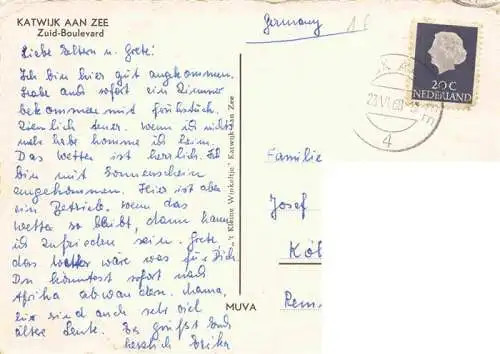 KATWIJK AAN ZEE
Zuid-Boulevard
Liebe Eltern u. Grete!
Ich bin hier gut angekommen.
Habe auch sofort ein Zimmer
bekommen mit Frühstück.
Ziemlich teuer. wenn ich nichts
mehr habe komme ich heim.
Das Wetter ist herrlich. Ich
bin mit Sonnenschein
angekommen. Hier ist aber
ein Betrieb. wenn das
wetter so bleibt, dann kann
ich zufrieden sein. Grete
das wetter wäre was für Dich.
Du könntest sofort nach
Afrika abwandern. Mama,
hier sind auch sehr viel
ältere Leute. Es grüßt Euch
herzlich Erika
„'t Kleine Winkeltje" Katwijk aan Zee
MUVA
Germany
20c
NEDERLAND
4
Familie
Josef
Köl
Rem